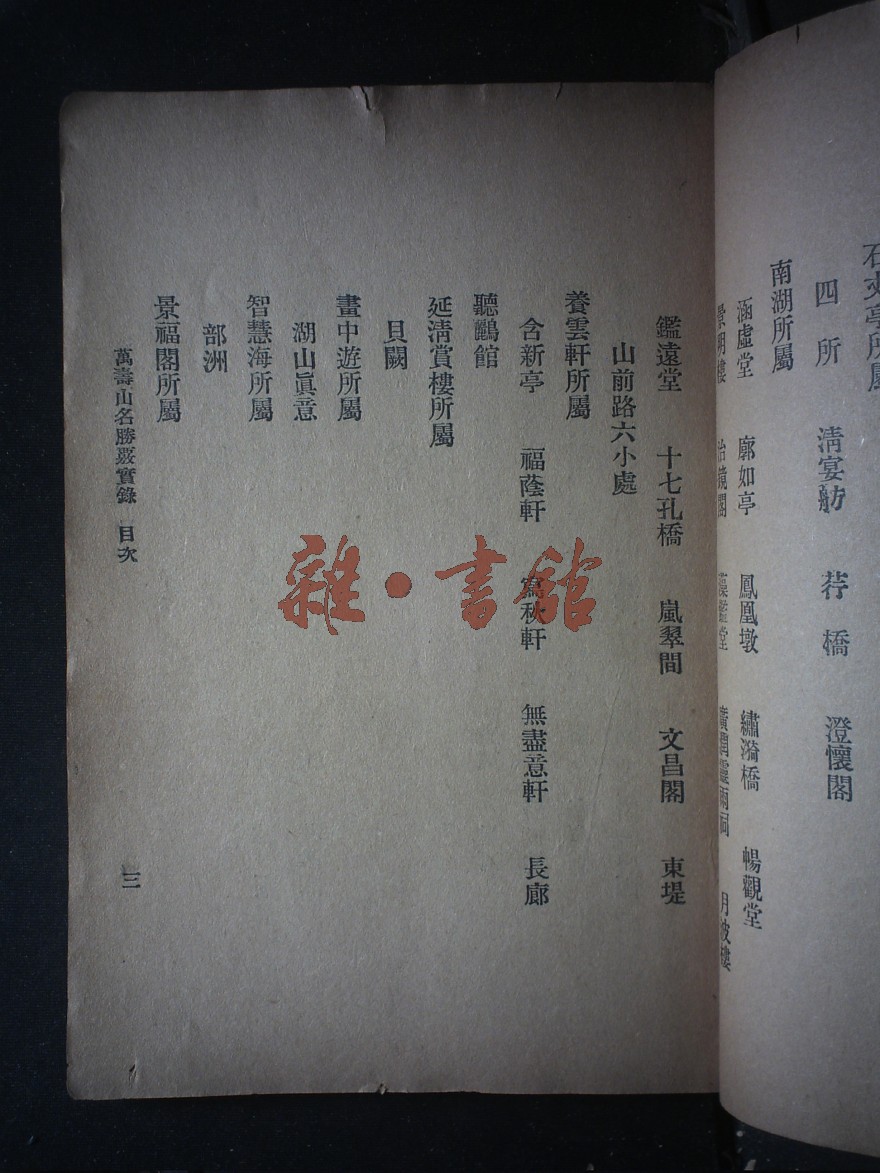 四所　清宴舫　荇橋　澄懷閣
南湖所屬
涵虛堂　廓如亭　鳳凰墩　繡漪橋　暢觀堂
景明樓　治鏡閣　藻鑑堂　廣潤靈雨祠　月波樓
鑑遠堂　十七孔橋　嵐翠間　文昌閣　東堤
山前路六小處
養雲軒所屬
含新亭　福蔭軒　寫秋軒　無盡意軒　長廊
聽鸝館
延清賞樓所屬
貝闕
畫中遊所屬
湖山眞意
智慧海所屬
部洲
景福閣所屬
萬壽山名勝覈實錄　目次
三
雜·書館